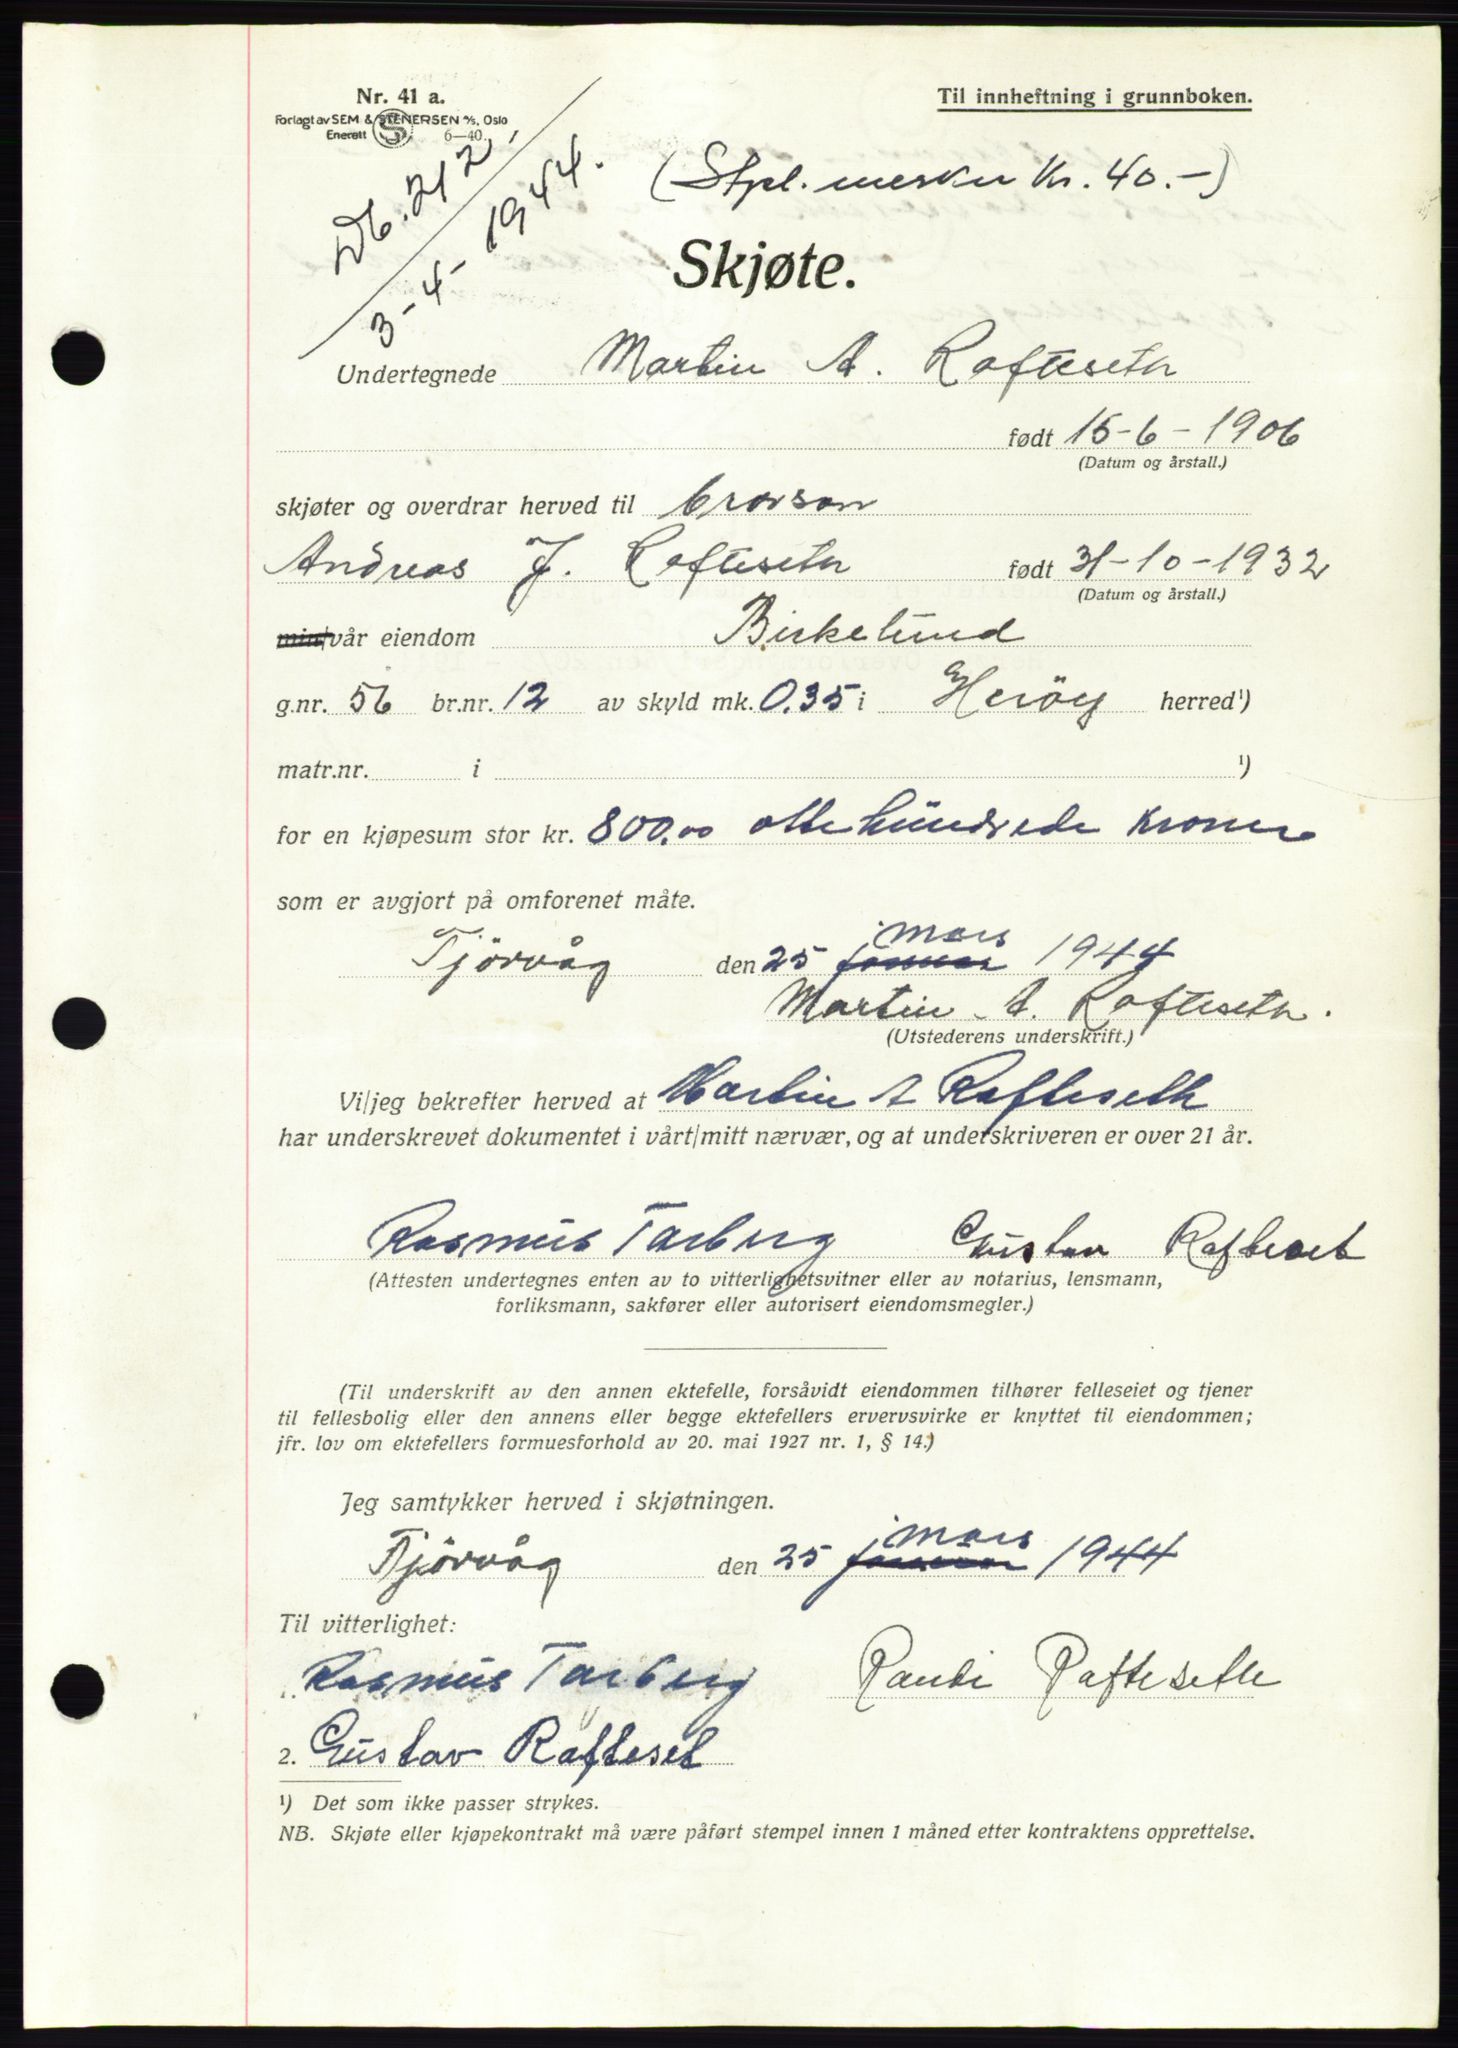 Nr. 41 a.
Forlagt av SEM & STENERSEN A/S, Oslo
Enerett 6—40.
Til innheftning i grunnboken.
Db. 212
3-4-1944.
(Stpl. merker Kr. 40.-)
Skjøte.
Undertegnede Martin A. Rafteseth
født 15-6-1906
(Datum og årstall.)
skjøter og overdrar herved til brorson
Andreas J. Rafteseth født 31-10-1932
(Datum og årstall.)
min/vår eiendom Birkelund
g.nr. 56 br.nr. 12 av skyld mk. 0.35 i Heröy herred¹)
matr.nr. i ¹)
for en kjøpesum stor kr. 800.00 otte hundrede Kroner
som er avgjort på omforenet måte.
Tjörvåg den 25 januar mars 1944
Martin A. Rafteseth.
(Utstederens underskrift.)
Vi/jeg bekrefter herved at Martin A Rafteseth
har underskrevet dokumentet i vårt/mitt nærvær, og at underskriveren er over 21 år.
Rasmus Tarberg Gustav Rafteset
(Attesten undertegnes enten av to vitterlighetsvitner eller av notarius, lensmann,
forliksmann, sakfører eller autorisert eiendomsmegler.)
(Til underskrift av den annen ektefelle, forsåvidt eiendommen tilhører felleseiet og tjener
til fellesbolig eller den annens eller begge ektefellers ervervsvirke er knyttet til eiendommen;
jfr. lov om ektefellers formuesforhold av 20. mai 1927 nr. 1, § 14.)
Jeg samtykker herved i skjøtningen.
Tjörvåg den 25 januar mars 1944
Til vitterlighet:
Rasmus Tarberg Randi Rafteseth
2. Gustav Rafteset
¹) Det som ikke passer strykes.
NB. Skjøte eller kjøpekontrakt må være påført stempel innen 1 måned etter kontraktens opprettelse.